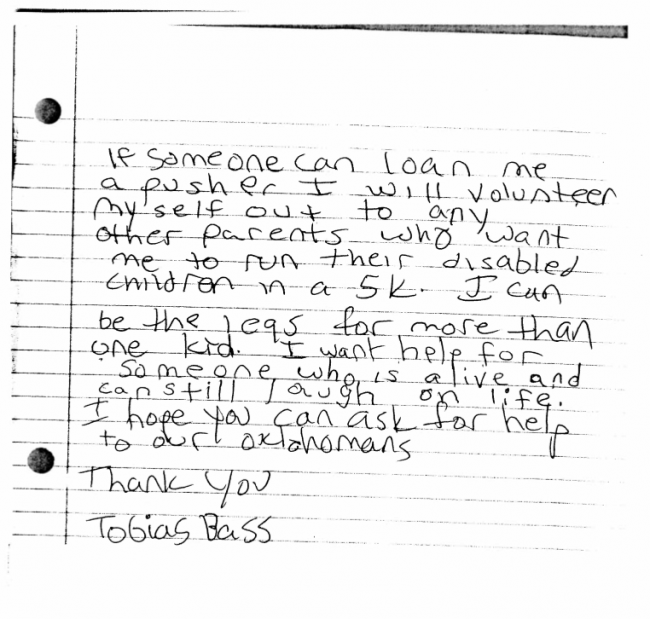 If someone can loan me
a pusher I will volunteer
my self out to any
other parents who want
me to run their disabled
children in a 5k. I can
be the legs for more than
one kid. I want help for
someone who is alive and
can still laugh on life.
I hope you can ask for help
to our oklahomans
Thank you
Tobias Bass